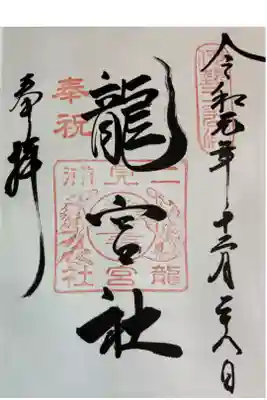 令和元年十二月二八日
奉祝
龍宮社
二見浦
龍宮社
奉拝